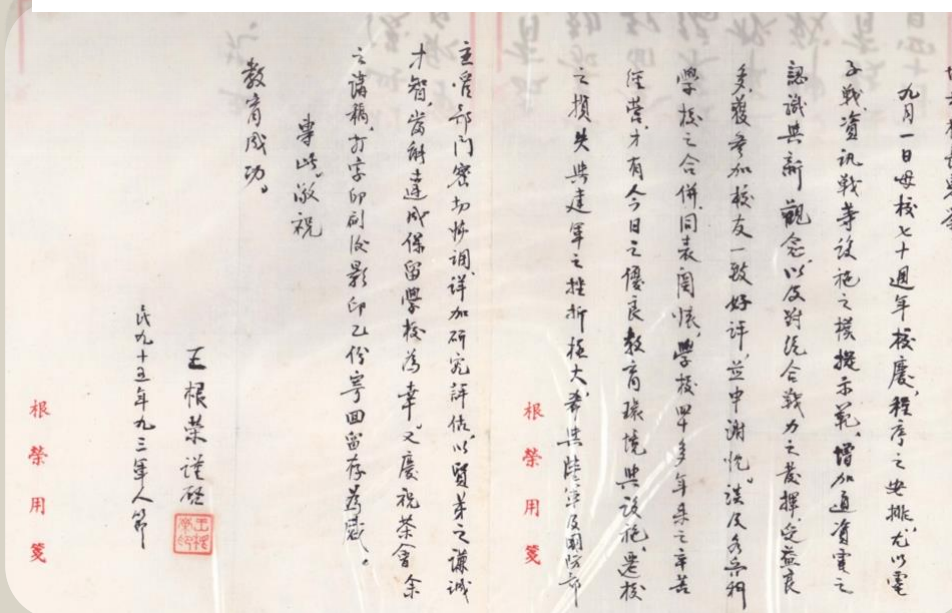 九月一日母校七十週年校慶，程序之安排，尤以電
子戰、資訊戰等設施之模擬示範，增加通資電之
認識與新觀念，以及對統合戰力之發揮，受益良
多，獲參加校友一致好評，並申謝忱。談及各兵科
學校之合併，同表關懷，學校四十多年來之辛苦
經營，才有今日之優良教育環境與設施，遷校
之損失與建軍之挫折極大，希與陸軍及國防部
主管部門密切協調，詳加研究評估，以賢弟之謙誠
才智，當能達成保留學校為幸。又慶祝茶會余
之講稿，打字印刷後影印乙份寄回留存為感。
專此敬祝
教育成功。
王根榮謹啟
民九十五年九三軍人節
根榮用箋
根榮用箋